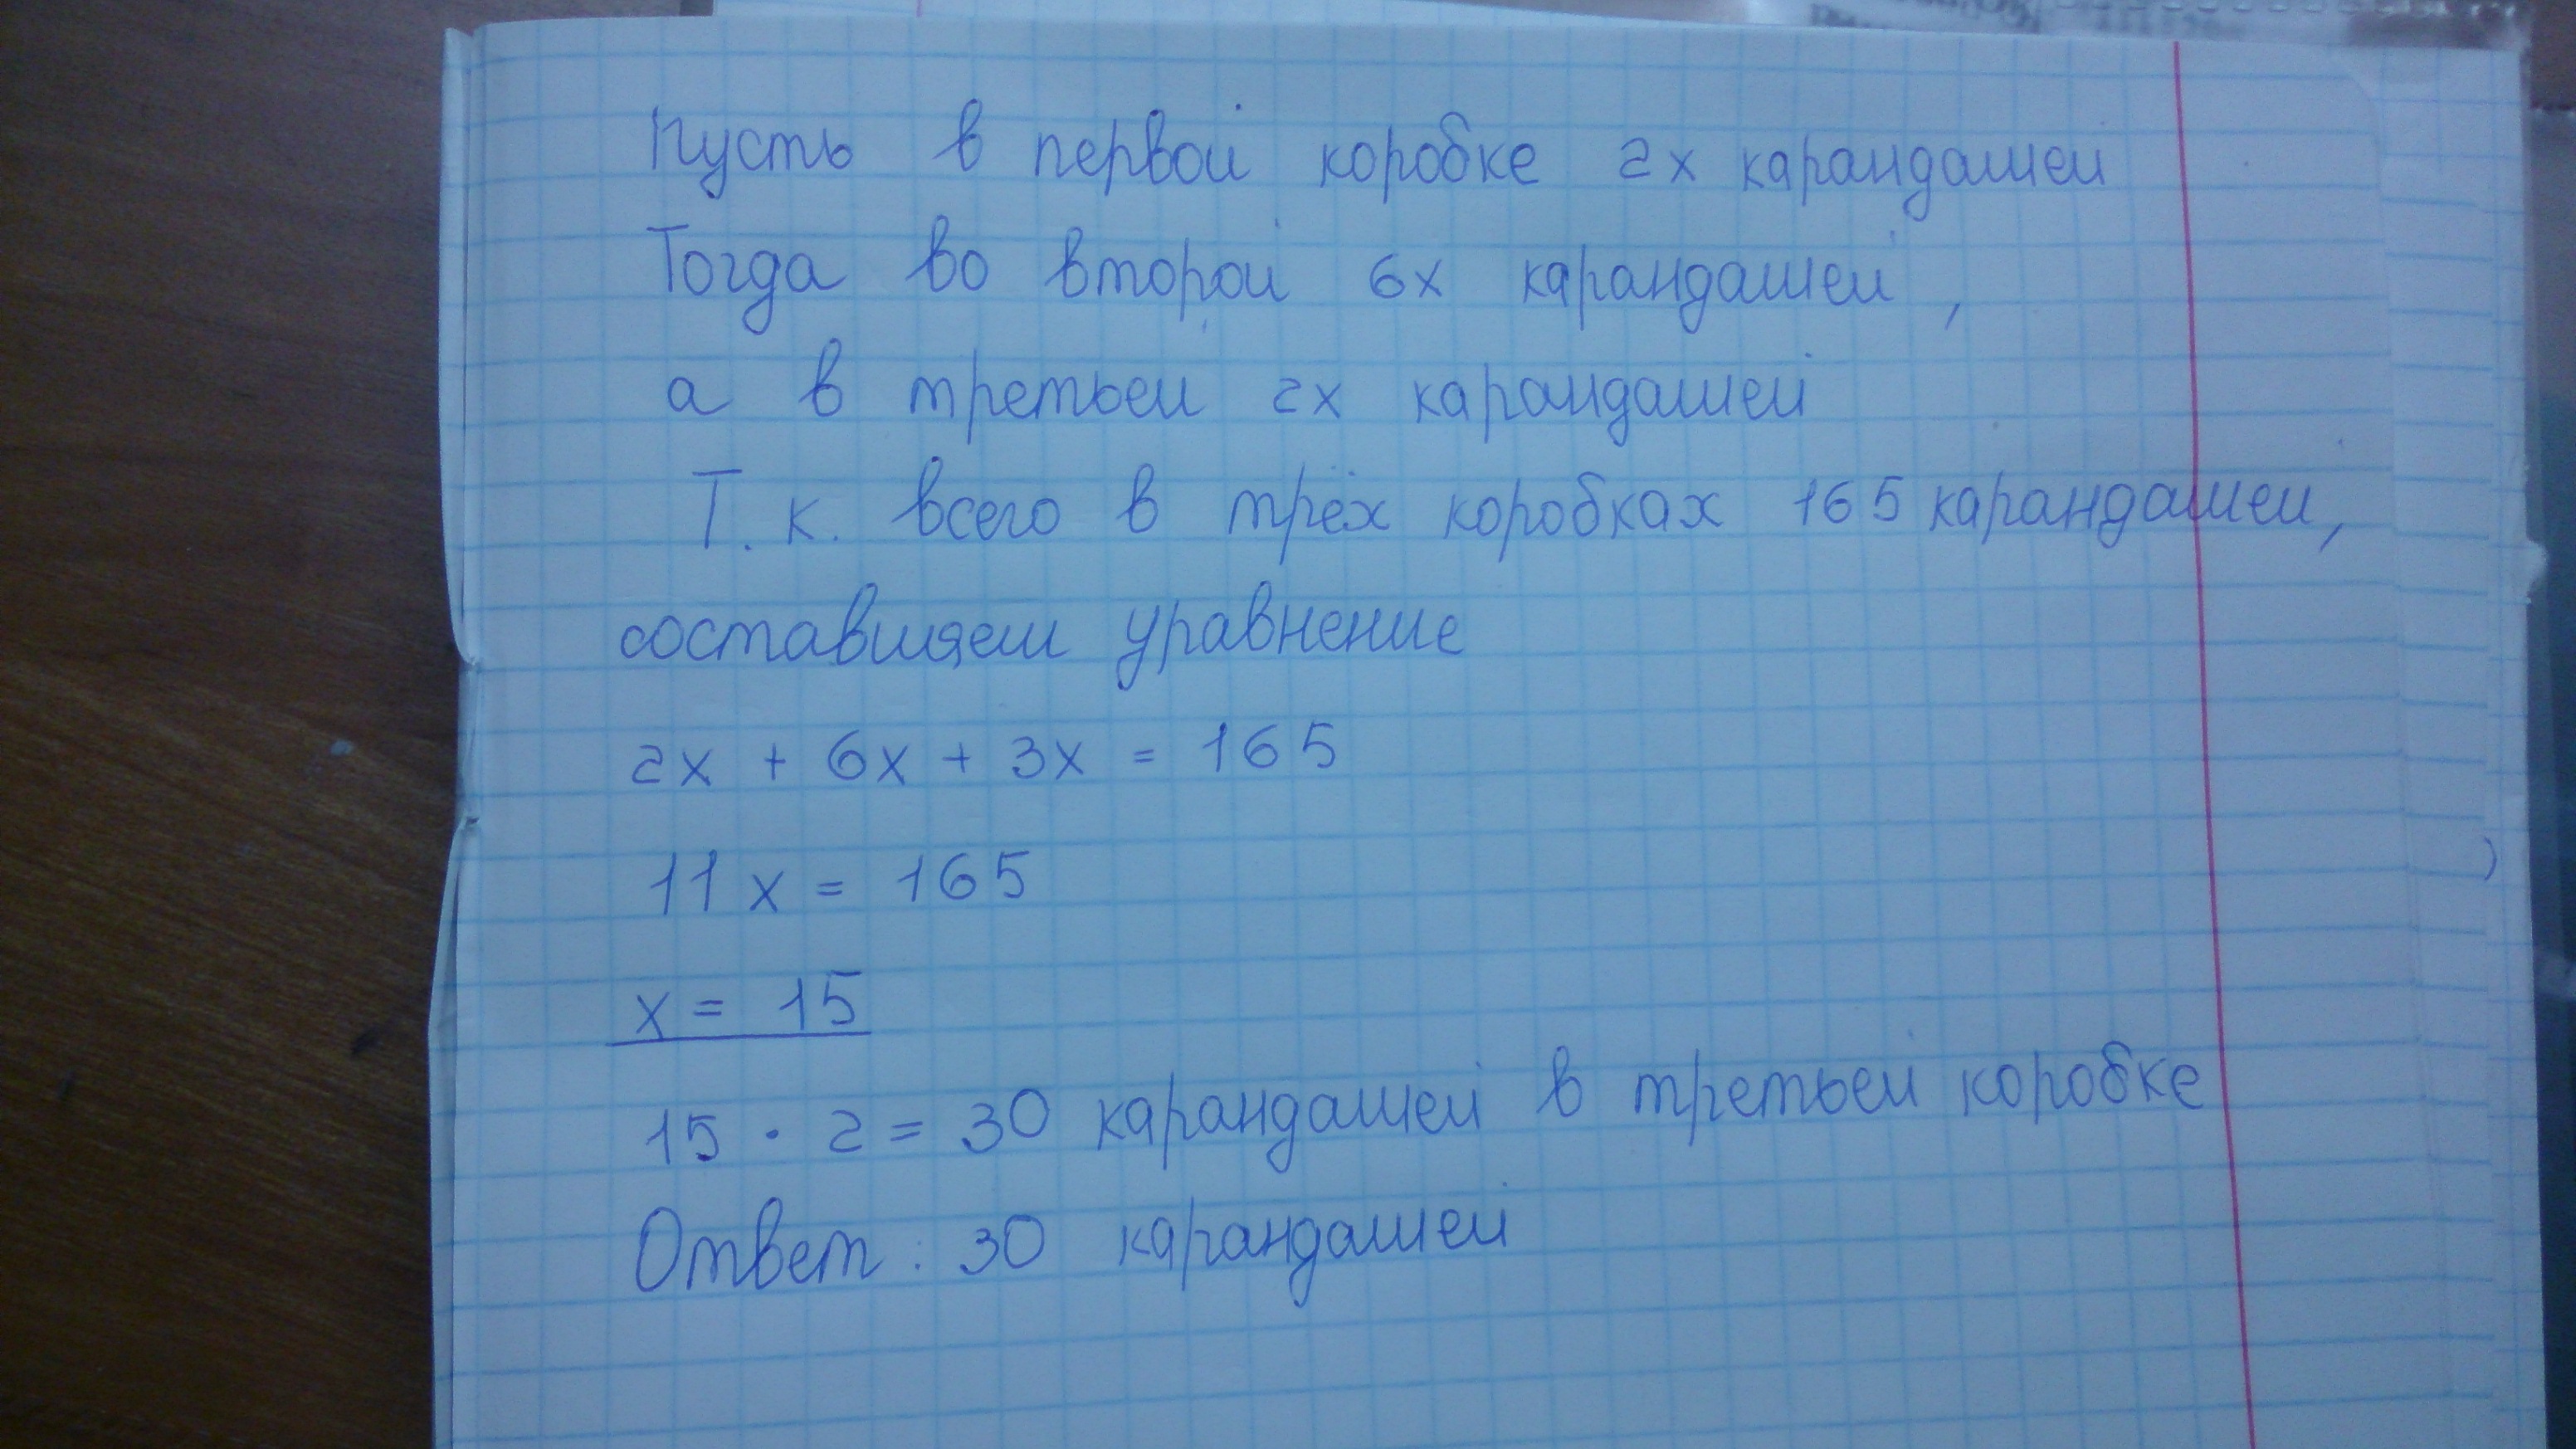 Пусть в первой коробке 2x карандашей
Тогда во второй 6x карандашей,
а в третьей 2x карандашей
Т. к. всего в трёх коробках 165 карандашей,
составляем уравнение
2x + 6x + 3x = 165
11x = 165
x = 15
15 · 2 = 30 карандашей в третьей коробке
Ответ: 30 карандашей